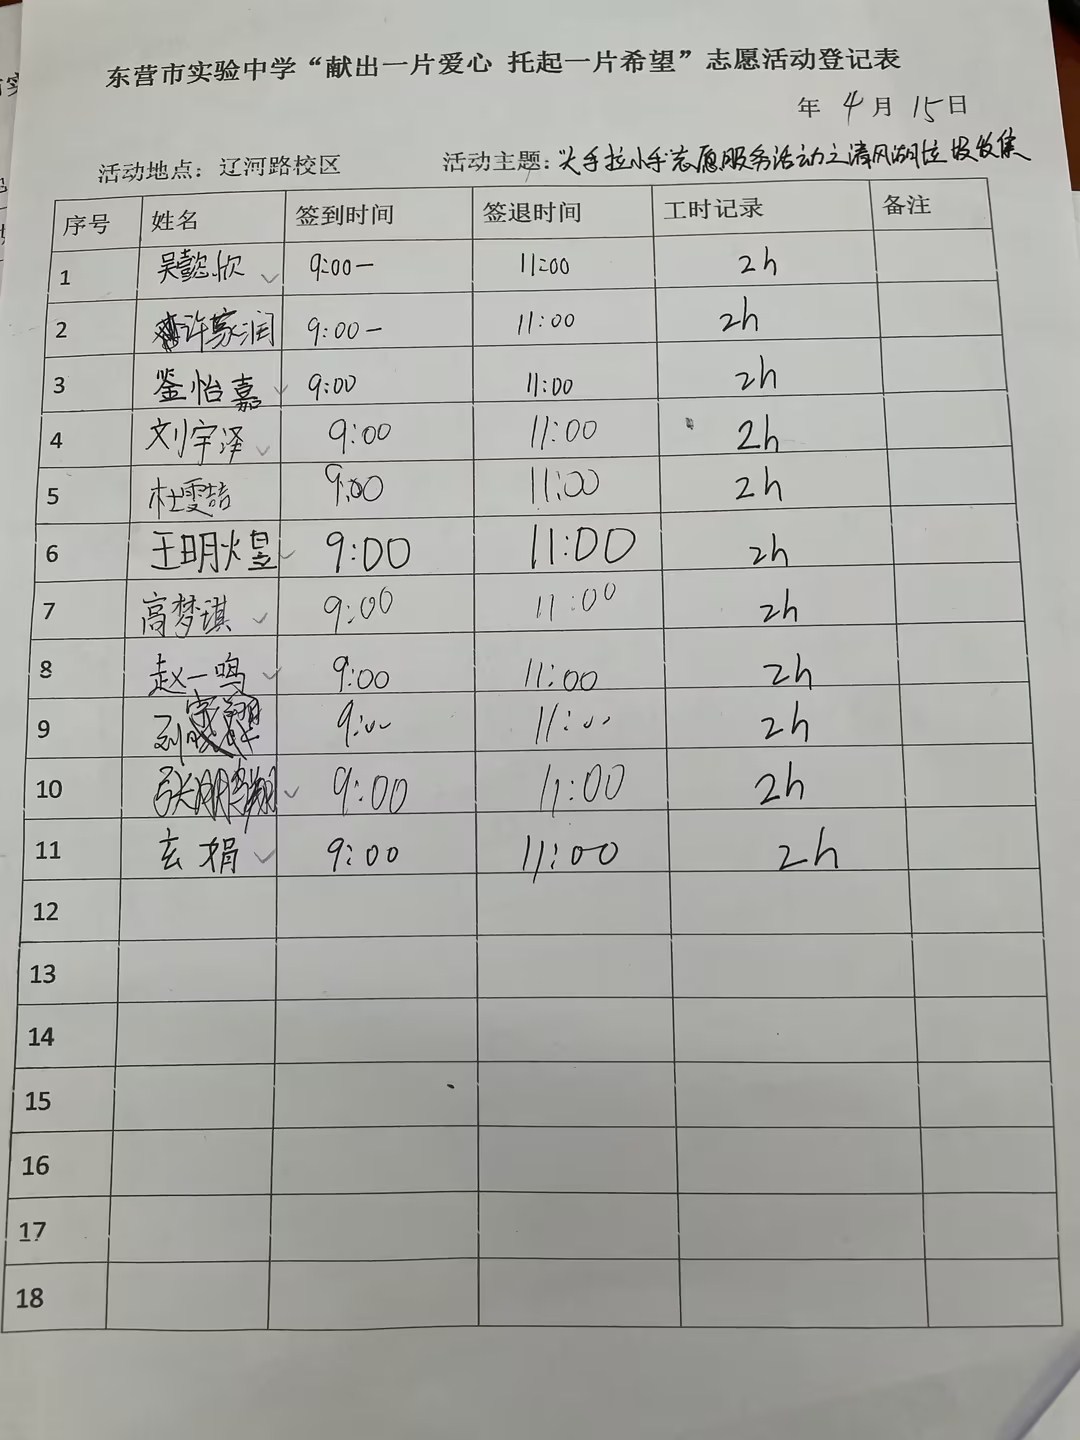 东营市实验中学“献出一片爱心 托起一片希望”志愿活动登记表
年 4月 15日
活动地点：辽河路校区 活动主题：大手拉小手志愿服务活动之清风湖垃圾收集
序号 姓名 签到时间 签退时间 工时记录 备注
1 吴懿欣 9:00— 11:00 2h
2 许家润 9:00— 11:00 2h
3 鉴怡嘉 9:00 11:00 2h
4 刘宇泽 9:00 11:00 2h
5 杜雯喆 9:00 11:00 2h
6 王明煜 9:00 11:00 2h
7 高梦琪 9:00 11:00 2h
8 赵一鸣 9:00 11:00 2h
9 刘 9:00 11:00 2h
10 张 9:00 11:00 2h
11 玄娟 9:00 11:00 2h
12
13
14
15
16
17
18